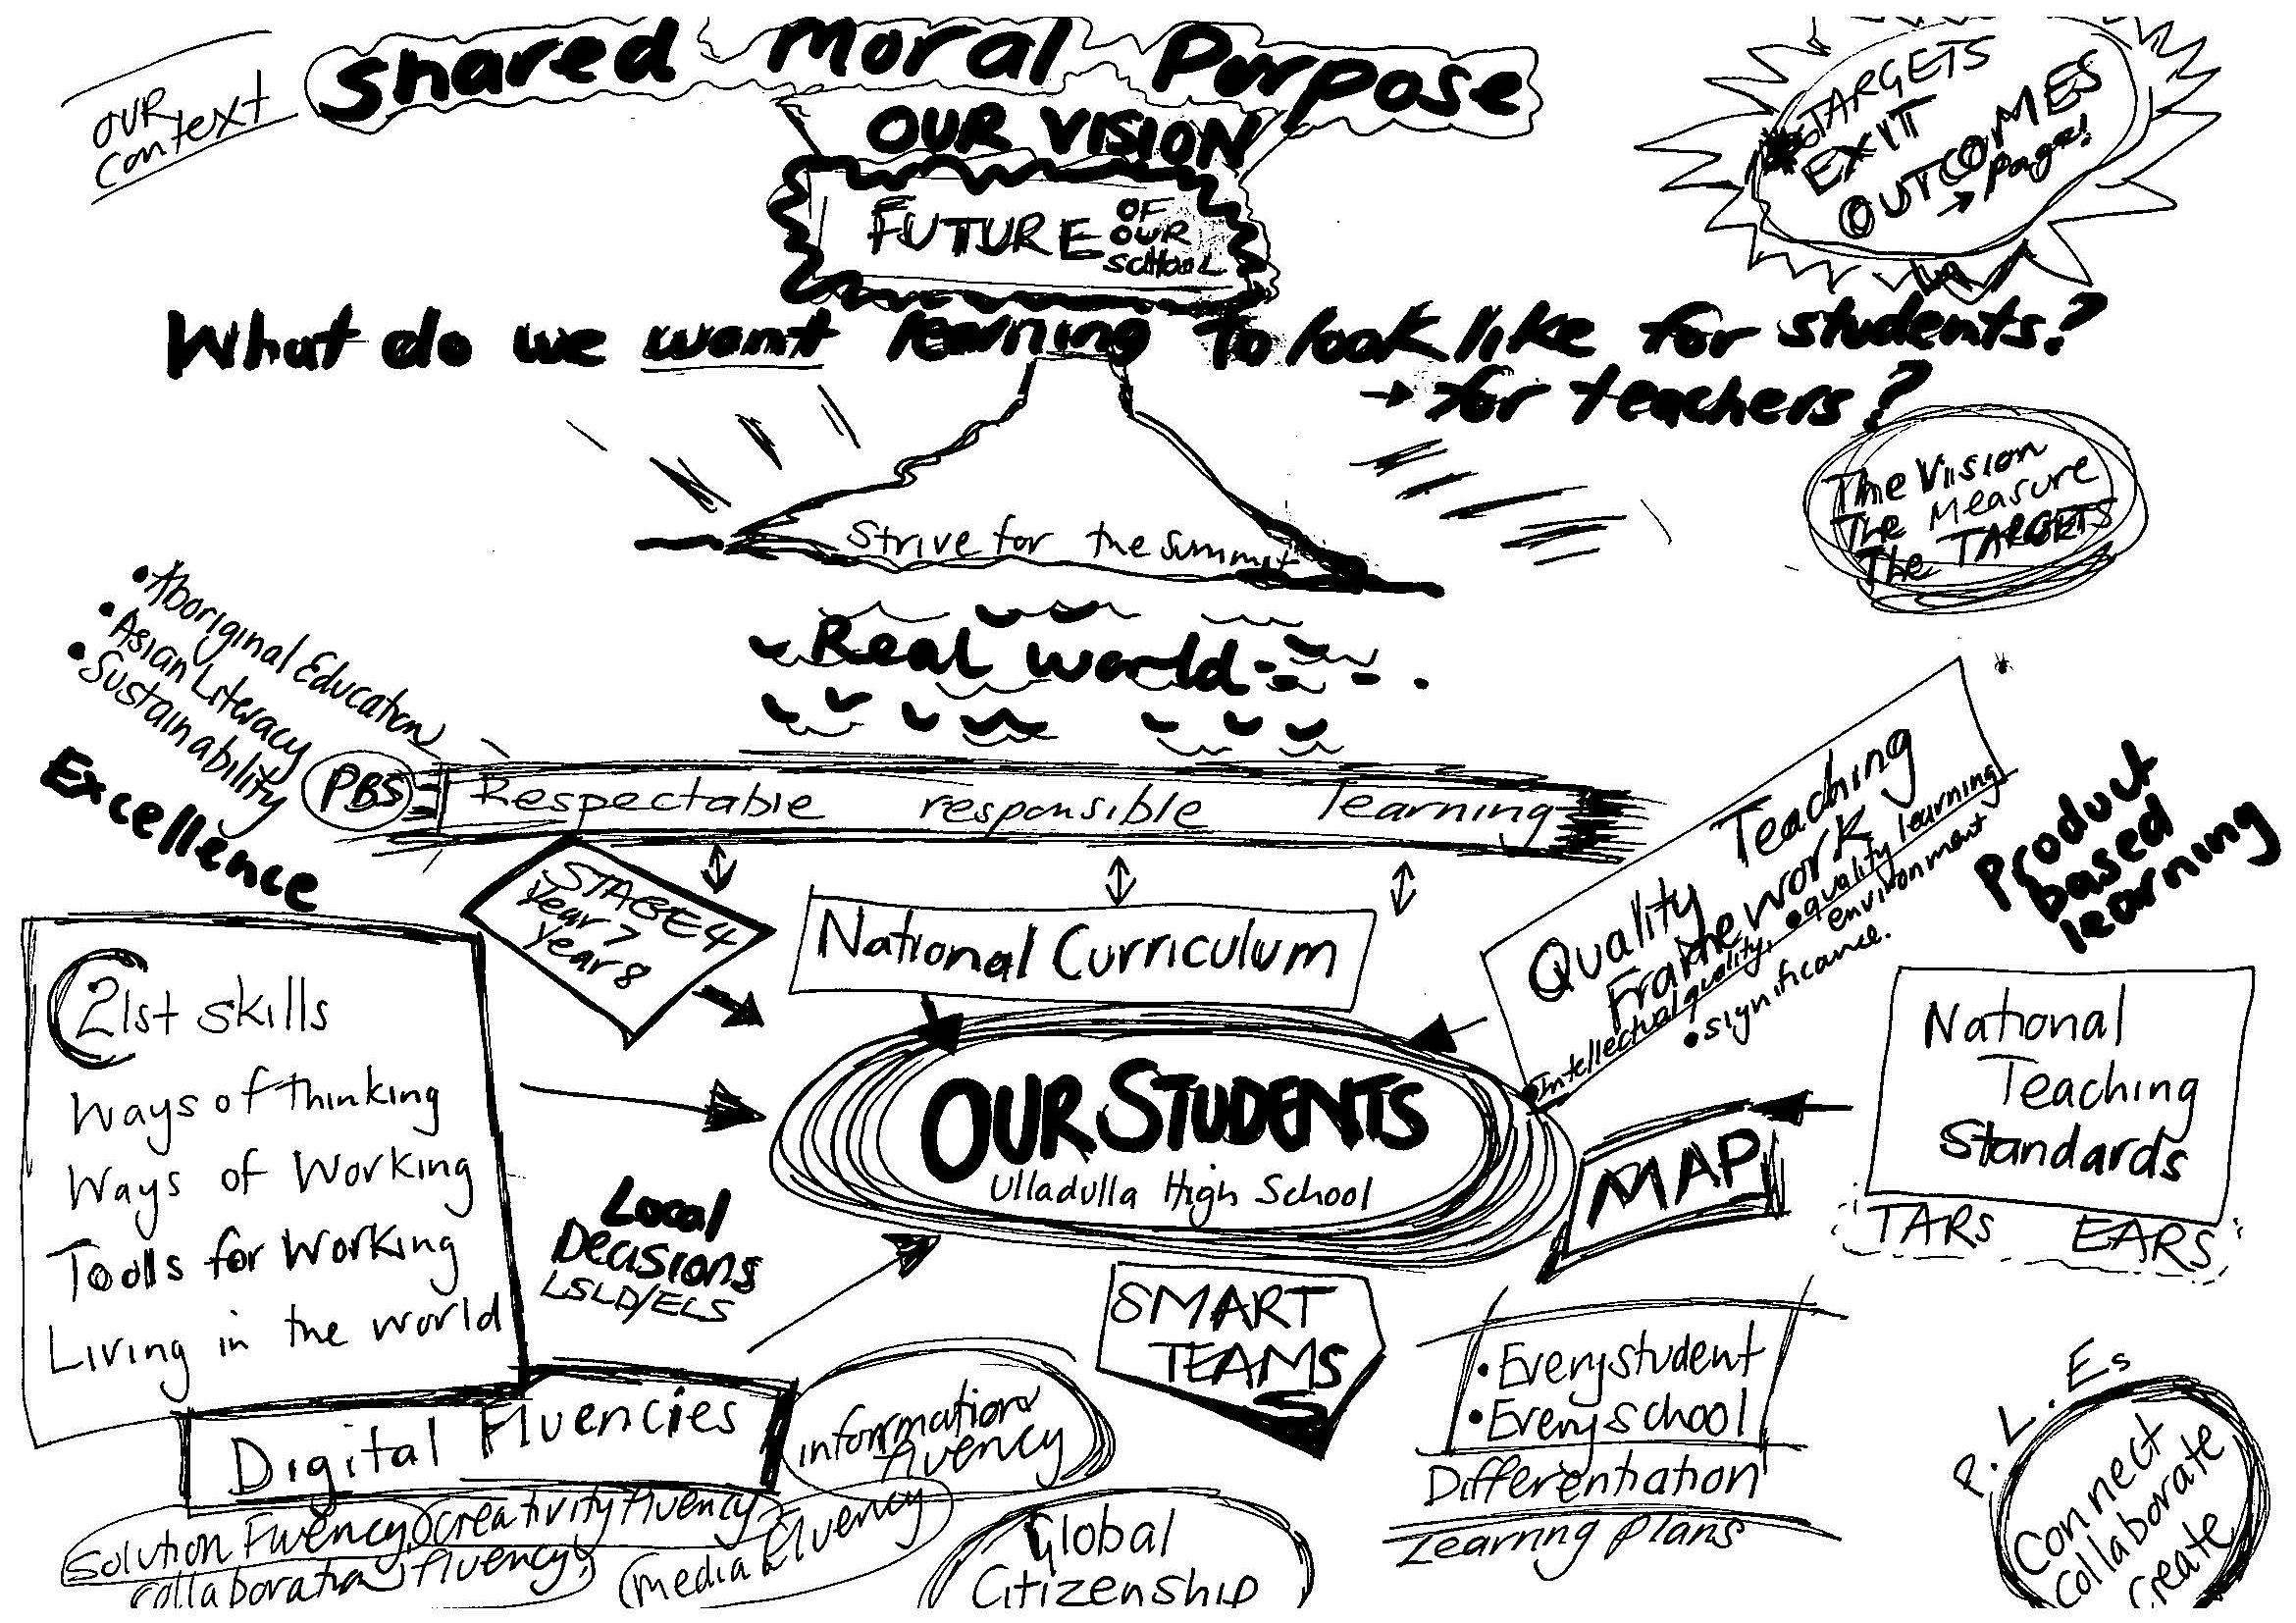 OUR
Context
Shared Moral Purpose
OUR VISION
FUTURE OF OUR SCHOOL
TARGETS
EXIT
OUTCOMES
→ page!
What do we want learning to look like for students?
→ for teachers?
The Viision
The Measure
The TARGETS
Strive for the summit
Real world
• Aboriginal Education
• Asian Literacy
• Sustainability
Excellence
PBS
Respectable responsible learning
STAGE 4
Year 7
Year 8
National Curriculum
Quality Teaching
Framework
• Intellectual quality, • quality learning
environment
• significance.
Product
based
learning
21st skills
Ways of thinking
Ways of Working
Tools for Working
Living in the world
OUR STUDENTS
Ulladulla High School
MAP
National
Teaching
Standards
TARS EARS
Local
Decisions
LSLD/ELS
SMART
TEAMS
• Every student
• Every school
Differentiation
Learning plans
P.L.Es
Connect
Collaborate
Create
Digital Fluencies
information
fluency
Solution Fluency
Creativity fluency
collaboration fluency
media Fluency
Global
Citizenship